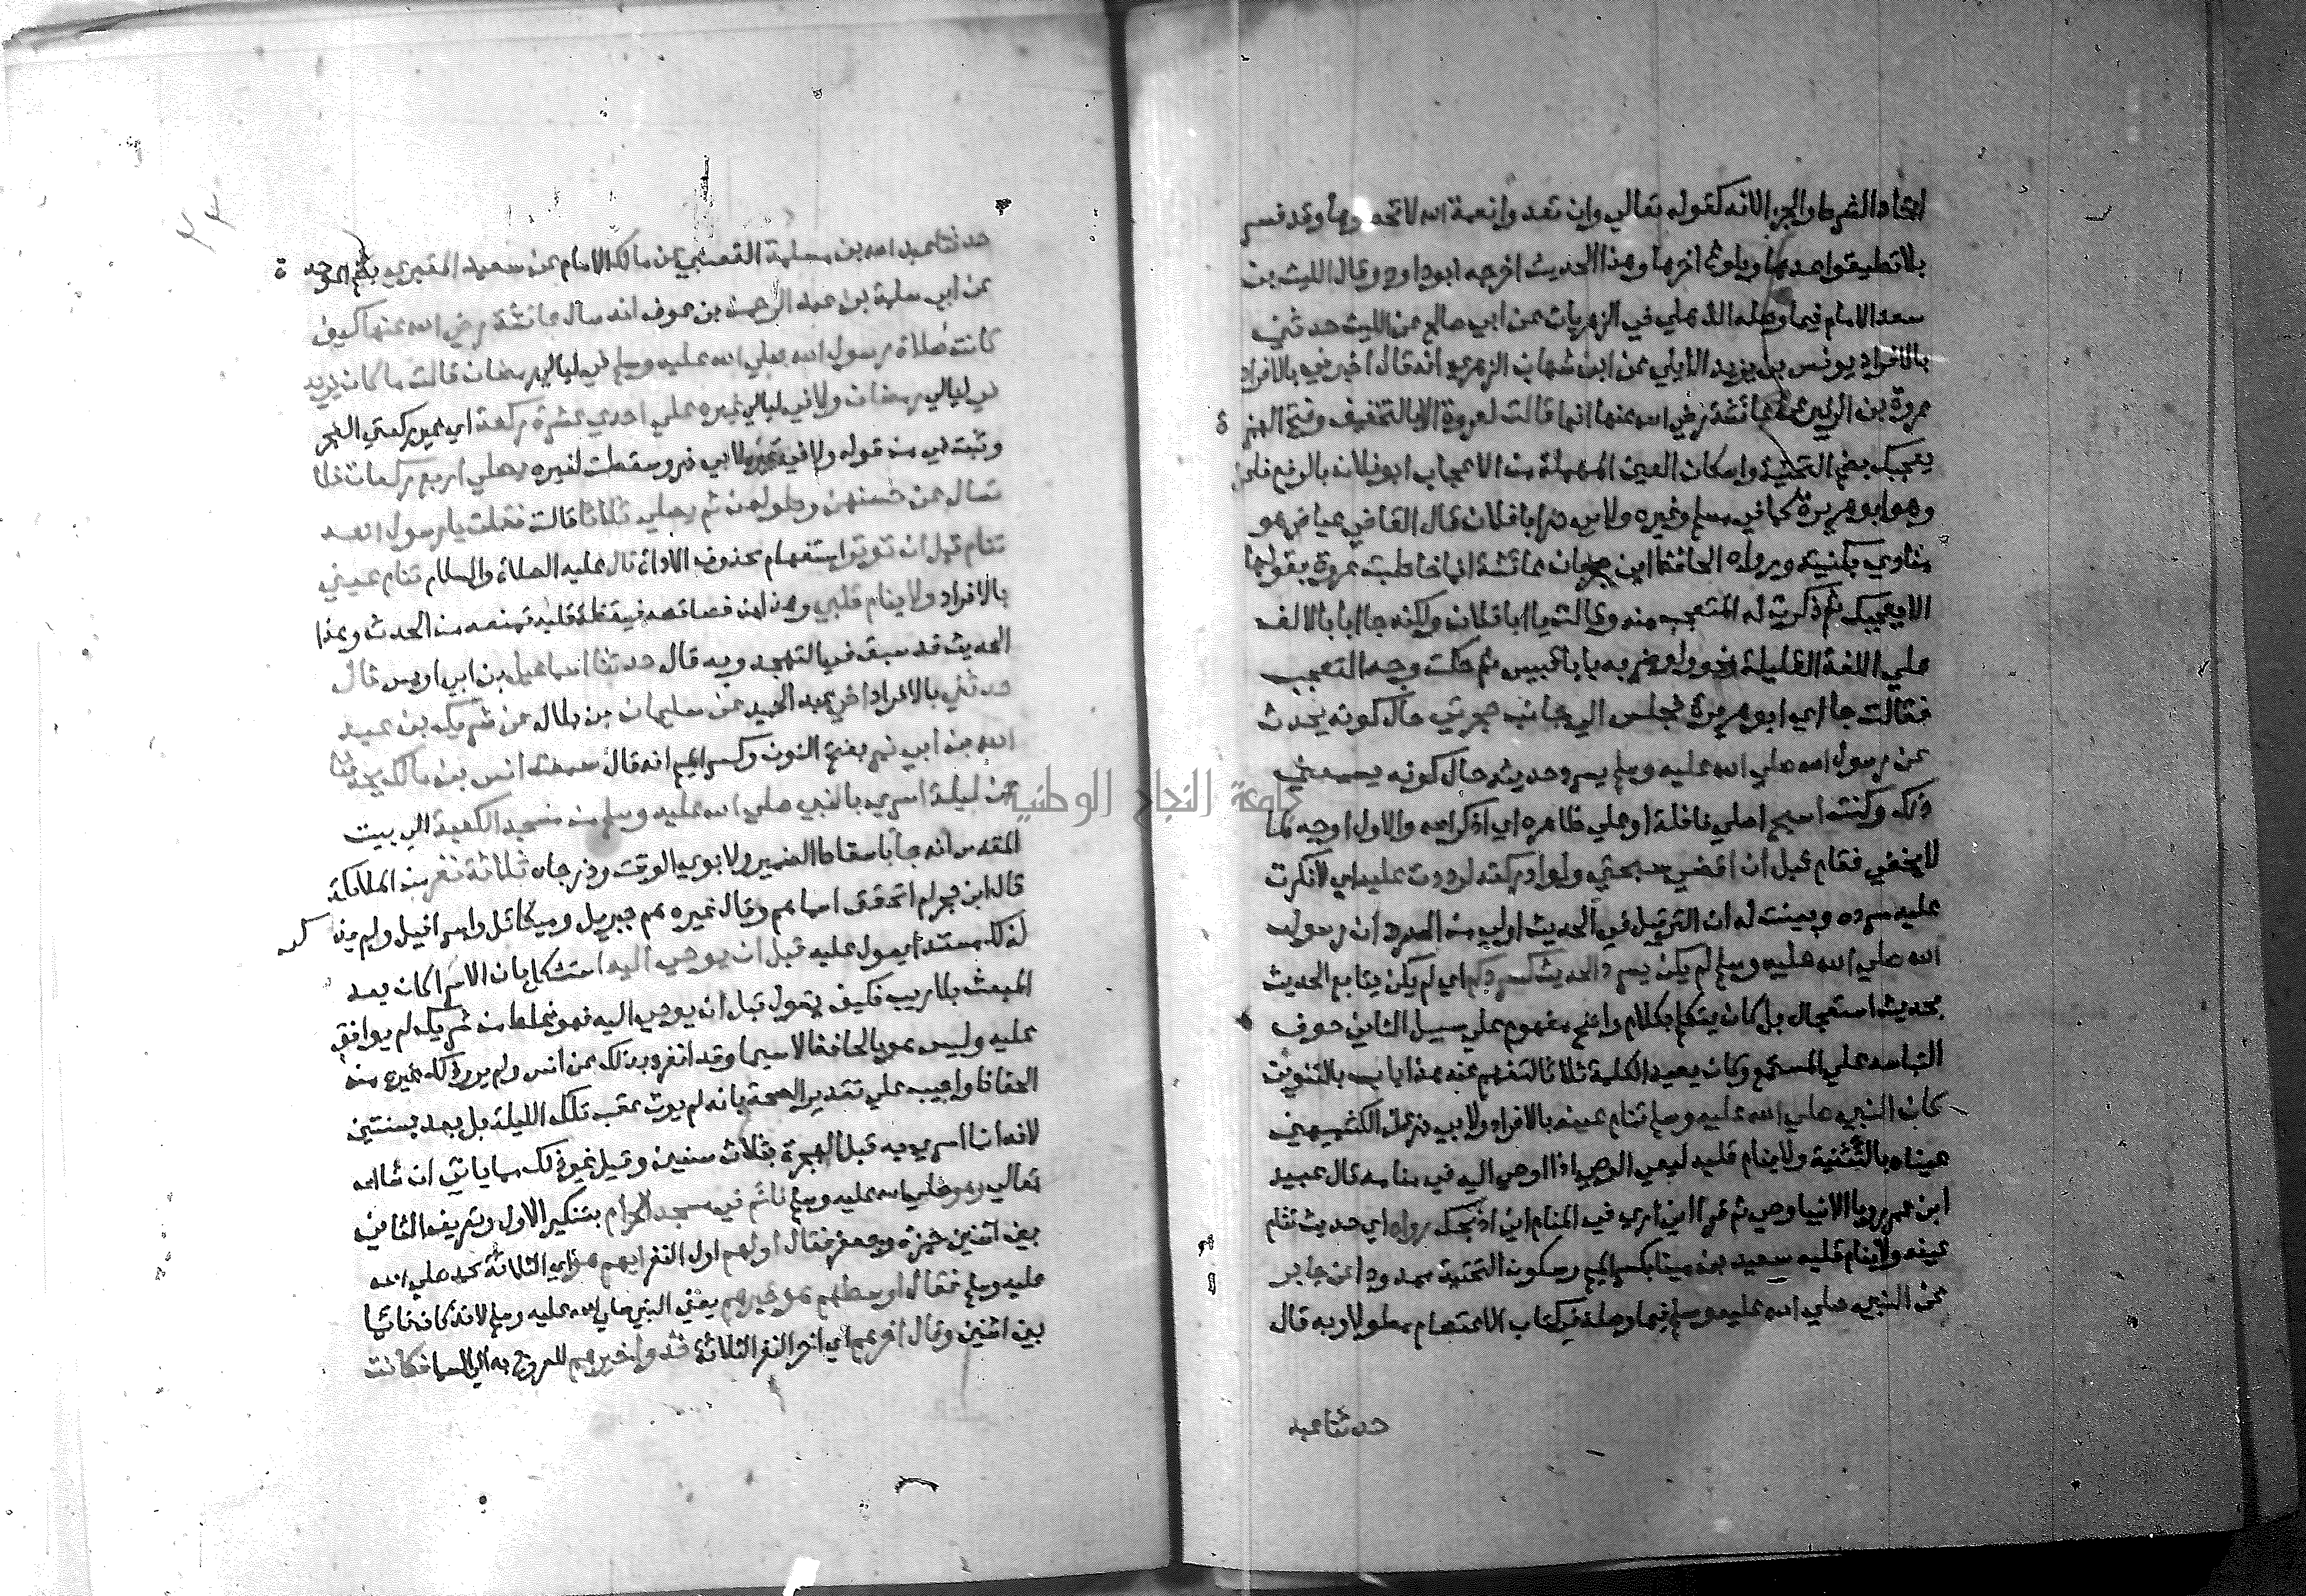 اتحاد الشرط والجزا لانه كقوله تعالي وان تعدوا نعمة الله لا تحصوها وقد فسر
بلا تطيقوا عدها وبلوغ اخرها وهذا الحديث اخرجه ابو داود وقال الليث بن
سعد الامام فيما وصله الذهلي في الزهريات عن ابي صالح عن الليث حدثني
بالافراد يونس بن يزيد الايلي عن ابن شهاب الزهري انه قال اخبرني بالافراد
عروة بن الزبير عن عائشة رضي الله عنها انها قالت لعروة الا بالتخفيف وفتح الهمزة
يعجبك بضم التحتية واسكان العين المهملة من الاعجاب ابو فلان بالرفع فاعل
وهو ابو هريرة كما في مسلم وغيره ولابي ذر ابا فلان قال القاضي عياض هو
منادي بكنيته ورواه الحافظ ابن حجر بان عائشة انما خاطبت عروة بقولها
الا يعجبك ثم ذكرت له المتعجب منه وقالت يا ابا فلان ولكنه جا ابا بالالف
علي اللغة القليلة نحو ولو ضربه بابا قبيس ثم حكت وجه التعجب
فقالت جا اي ابو هريرة فجلس الي جانب حجرتي حال كونه يحدث
عن رسول الله صلي الله عليه وسلم يسرد حديثه حال كونه يسمعني
ذلك وكنت اسبح اصلي نافلة او علي ظاهره اي اذكر الله والاول اوجه كما
لا يخفي فقام قبل ان اقضي سبحتي ولو ادركته لرددت عليه اي لانكرت
عليه سرده وبينت له ان الترتيل في الحديث اولي من السرد ان رسول
الله صلي الله عليه وسلم لم يكن يسرد الحديث كسردكم اي لم يكن يتابع الحديث
بحديث استعجال بل كان يتكلم بكلام واضح مفهوم علي سبيل التاني خوف
التباسه علي المستمع وكان يعيد الكلمة ثلاثا لتفهم عنه هذا باب بالتنوين
كان النبي صلي الله عليه وسلم تنام عينه بالافراد ولابي ذر عن الكشميهني
عيناه بالتثنية ولا ينام قلبه ليعي الوحي اذا اوحي اليه في منامه قال عبيد
ابن عمير رويا الانبيا وحي ثم قرا اني اري في المنام اني اذبحك رواه اي حديث تنام
عينه ولا ينام قلبه سعيد بن مينا بكسر الميم وسكون التحتية ممدودا عن جابر
عن النبي صلي الله عليه وسلم فيما وصله في كتاب الاعتصام مطولا وبه قال
حدثنا عبد
حدثنا عبد الله بن مسلمة القعنبي عن مالك الامام عن سعيد المقبري بضم الموحدة
عن ابي سلمة بن عبد الرحمن بن عوف انه سال عائشة رضي الله عنها كيف
كانت صلاة رسول الله صلي الله عليه وسلم في ليالي رمضان قالت ما كان يزيد
في ليالي رمضان ولا في ليالي غيره علي احدي عشرة ركعة اي غير ركعتي الفجر
وثبت في من قوله ولا في غيره لابي ذر وسقطت لغيره يصلي اربع ركعات فلا
تسال عن حسنهن وطولهن ثم يصلي ثلاثا قالت فقلت يا رسول الله
تنام قبل ان توتر استفهام بحذف الاداة قال عليه الصلاة والسلام تنام عيني
بالافراد ولا ينام قلبي وهذا من خصائصه فيقظة قلبه تمنعه من الحدث وهذا
الحديث قد سبق في التهجد وبه قال حدثنا اسماعيل بن ابي اويس قال
حدثني بالافراد اخي عبد الحميد عن سليمان بن بلال عن شريك بن عبد
الله بن ابي نمر بفتح النون وكسر الميم انه قال سمعت انس بن مالك يحدثنا
عن ليلة اسري بالنبي صلي الله عليه وسلم من مسجد الكعبة الي بيت
المقدس انه جا باسقاط الضمير ولابوي الوقت وذر جاه ثلاثة نفر من الملائكة
قال ابن حجر لم اتحقق اسماهم وقال غيره هم جبريل وميكائل واسرافيل ولم يذكر
لذلك مستندا يعول عليه قبل ان يوحي اليه استشكل بان الاسرا كان بعد
المبعث بلا ريب فكيف يقول قبل ان يوحي اليه فهو غلط من شريك لم يوافق
عليه وليس هو بالحافظ لا سيما وقد انفرد بذلك عن انس ولم يرو ذلك غيره من
الحفاظ واجيب علي تقدير الصحة بانه لم يوت عقب تلك الليلة بل بعد بسنتين
لانه انما اسري به قبل الهجرة بثلاث سنين وقيل غير ذلك مما ياتي ان شا الله
تعالي وهو صلي الله عليه وسلم نائم في مسجد الحرام بتنكير الاول وتعريف الثاني
بين اثنين حمزة وجعفر فقال اولهم اول النفر ايهم هو اي الثلاثة محمد صلي الله
عليه وسلم فقال اوسطهم هو خيرهم يعني النبي صلي الله عليه وسلم لانه كان نائما
بين اثنين وقال اخرهم اي اخر النفر الثلاثة خذوا خيرهم للعروج به الي السما فكانت
جامعة النجاح الوطنية